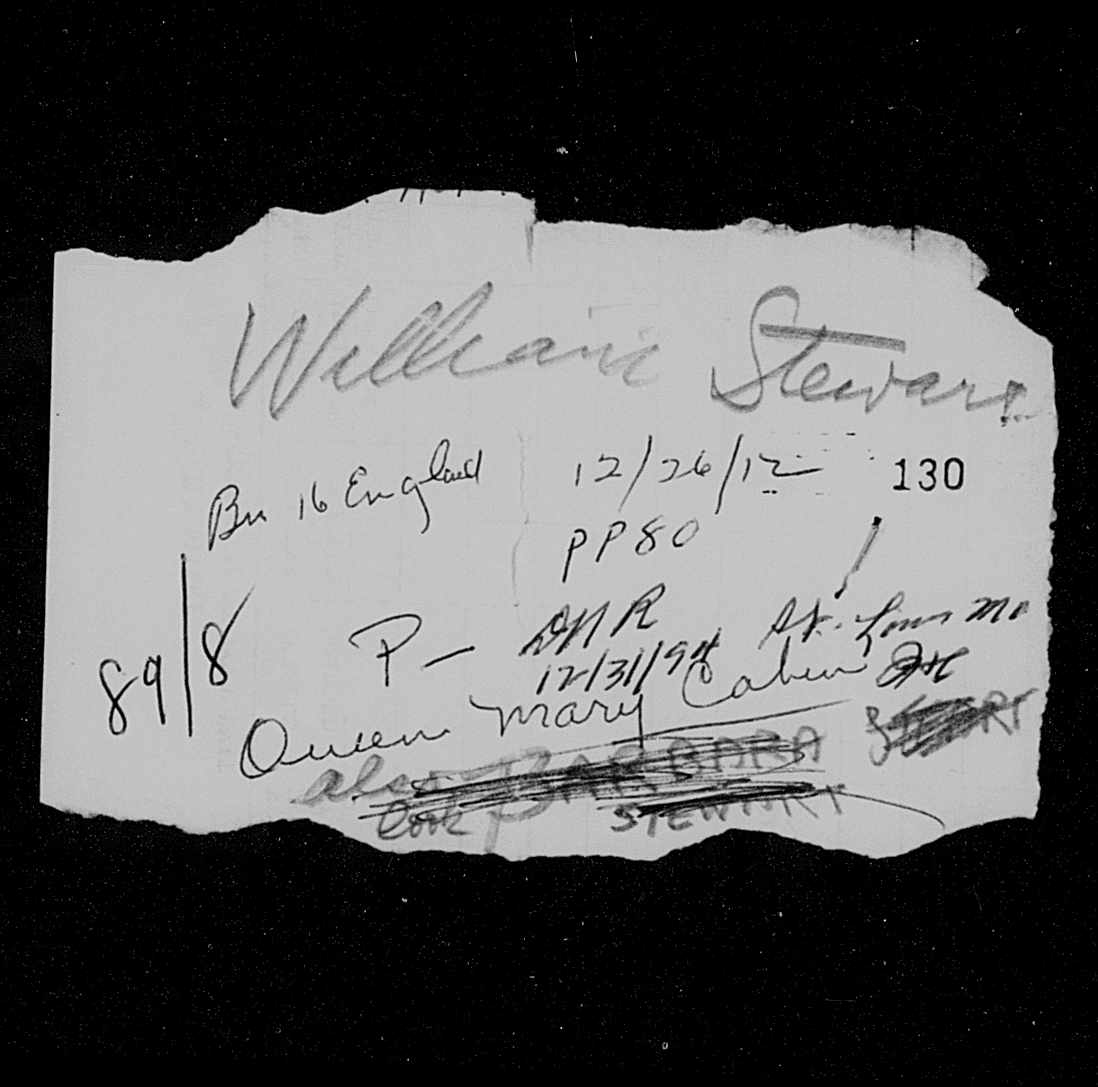 William Stewart
Bn 16 England 12/26/12 130
PP80
89/8 P- DNR St. Louis Mo
12/31/94
Queen Mary Cabin
also BARBARA
look STEWART